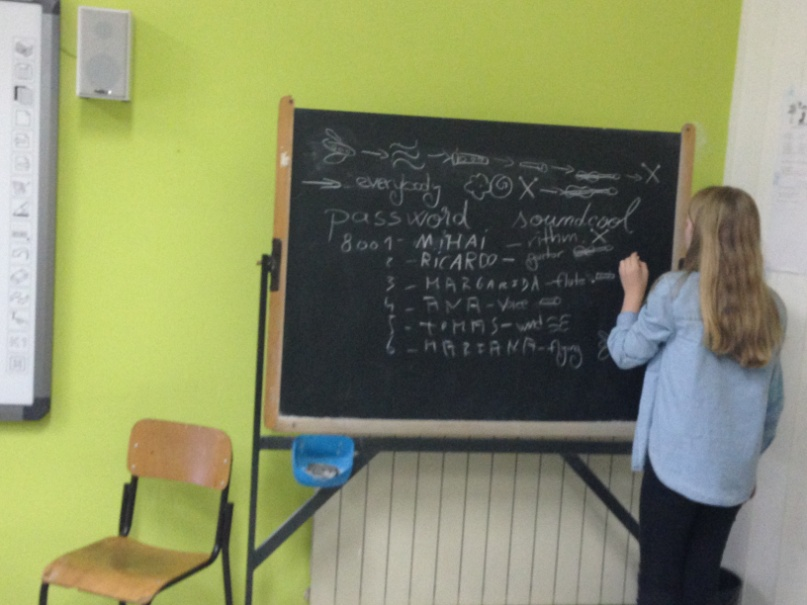 → everybody
password soundcool
8001 - MiHAi - rithm
2 - RiCARDO - guitar
3 - MARGARIDA - flute
4 - ANA - Voice
5 - TOMAS - wind
6 - MARIANA - flying